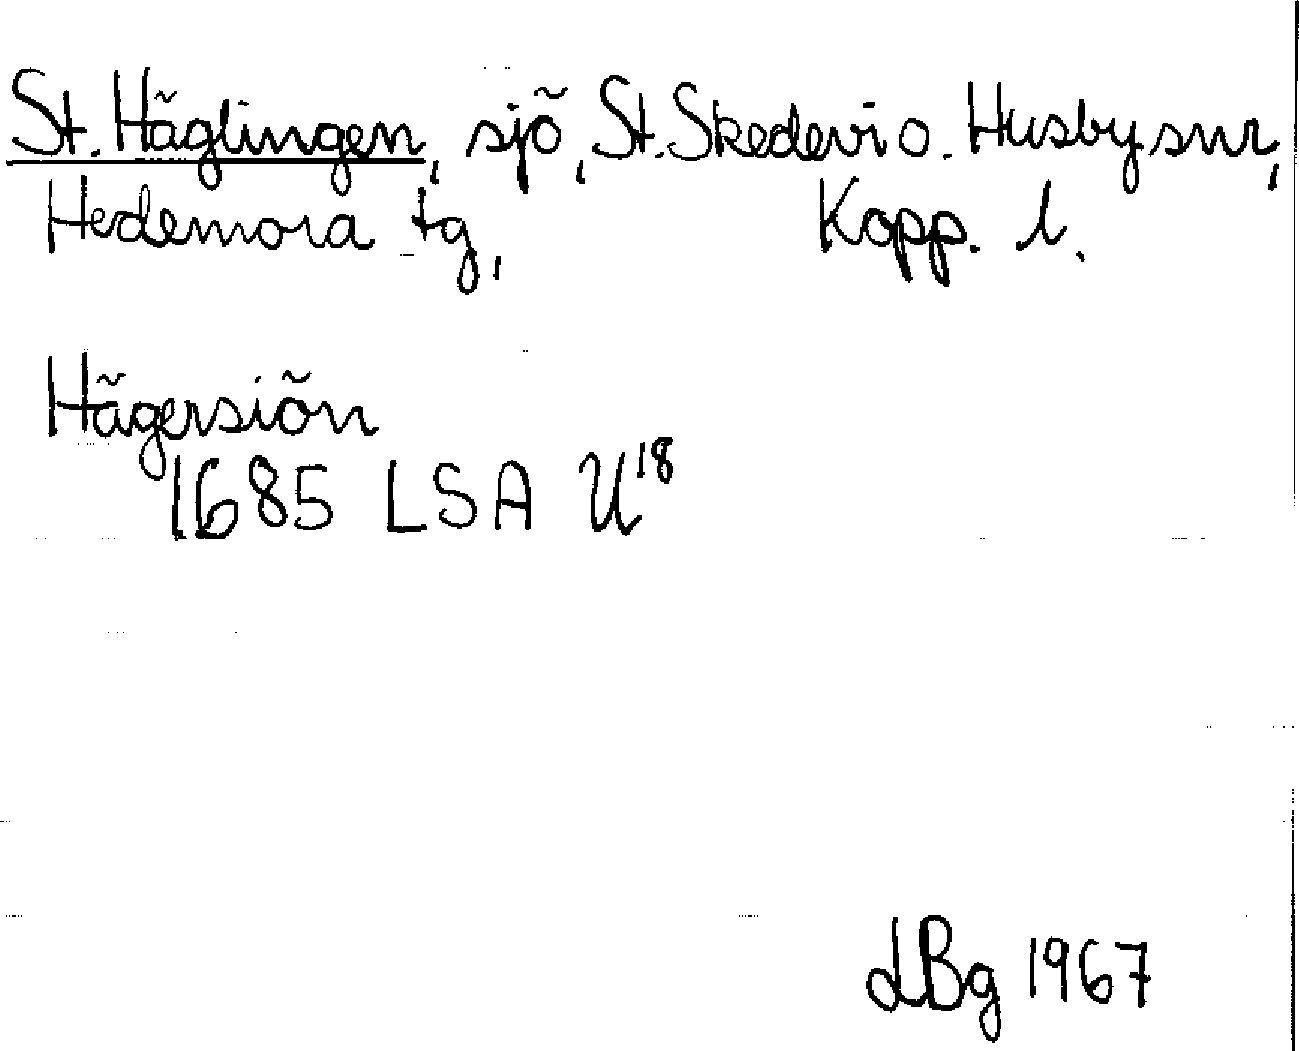 St. Häglingen, sjö, St. Skedevi o. Husby snr,
Hedemora tg, Kopp. l.
Hägersiön
1685 LSA U18
LBg 1967